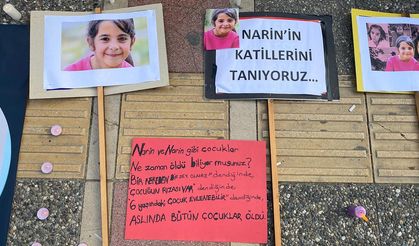 NARİN'İN
KATİLLERİNİ
TANIYORUZ...
Narin ve Narin gibi çocuklar
Ne zaman öldü biliyor musunuz?
BİR KEREDEN BİR ŞEY OLMAZ" dendiğinde,
ÇOCUĞUN RIZASI VAR" dendiğinde,
"6 yaşındaki ÇOCUK EVLENEBİLİR" dendiğinde,
ASLINDA BÜTÜN ÇOCUKLAR ÖLDÜ.